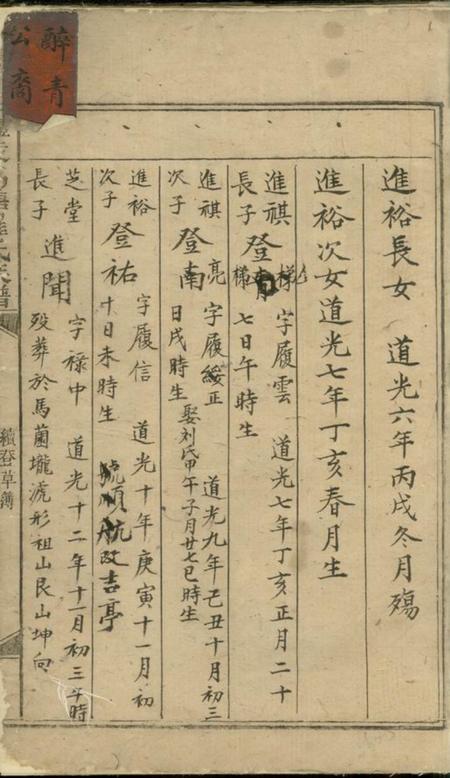 醉青
公裔
進裕長女 道光六年丙戌冬月殤
進裕次女道光七年丁亥春月生
進祺
長子
登
梯
字履雲 道光七年丁亥正月二十
七日午時生
進祺
次子
登南
亮
字履綏正 道光九年己丑十月初三
日戌時生
娶刘氏甲午子月廿七巳時生
進裕
次子
登祐
字履信 道光十年庚寅十一月初
十日未時生
號順航改吉亭
芝堂
長子
進聞
字祿中 道光十二年十一月初三午時
歿葬於馬蘭壠虎形祖山艮山坤向
氏族譜
續登草簿